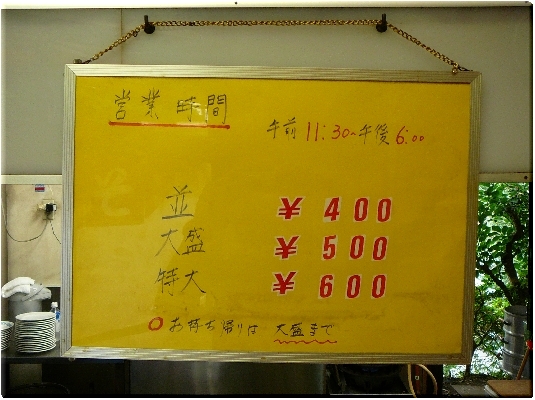 営業時間
午前 11:30~午後 6:00
並 ¥ 400
大盛 ¥ 500
特大 ¥ 600
○お持ち帰りは 大盛まで